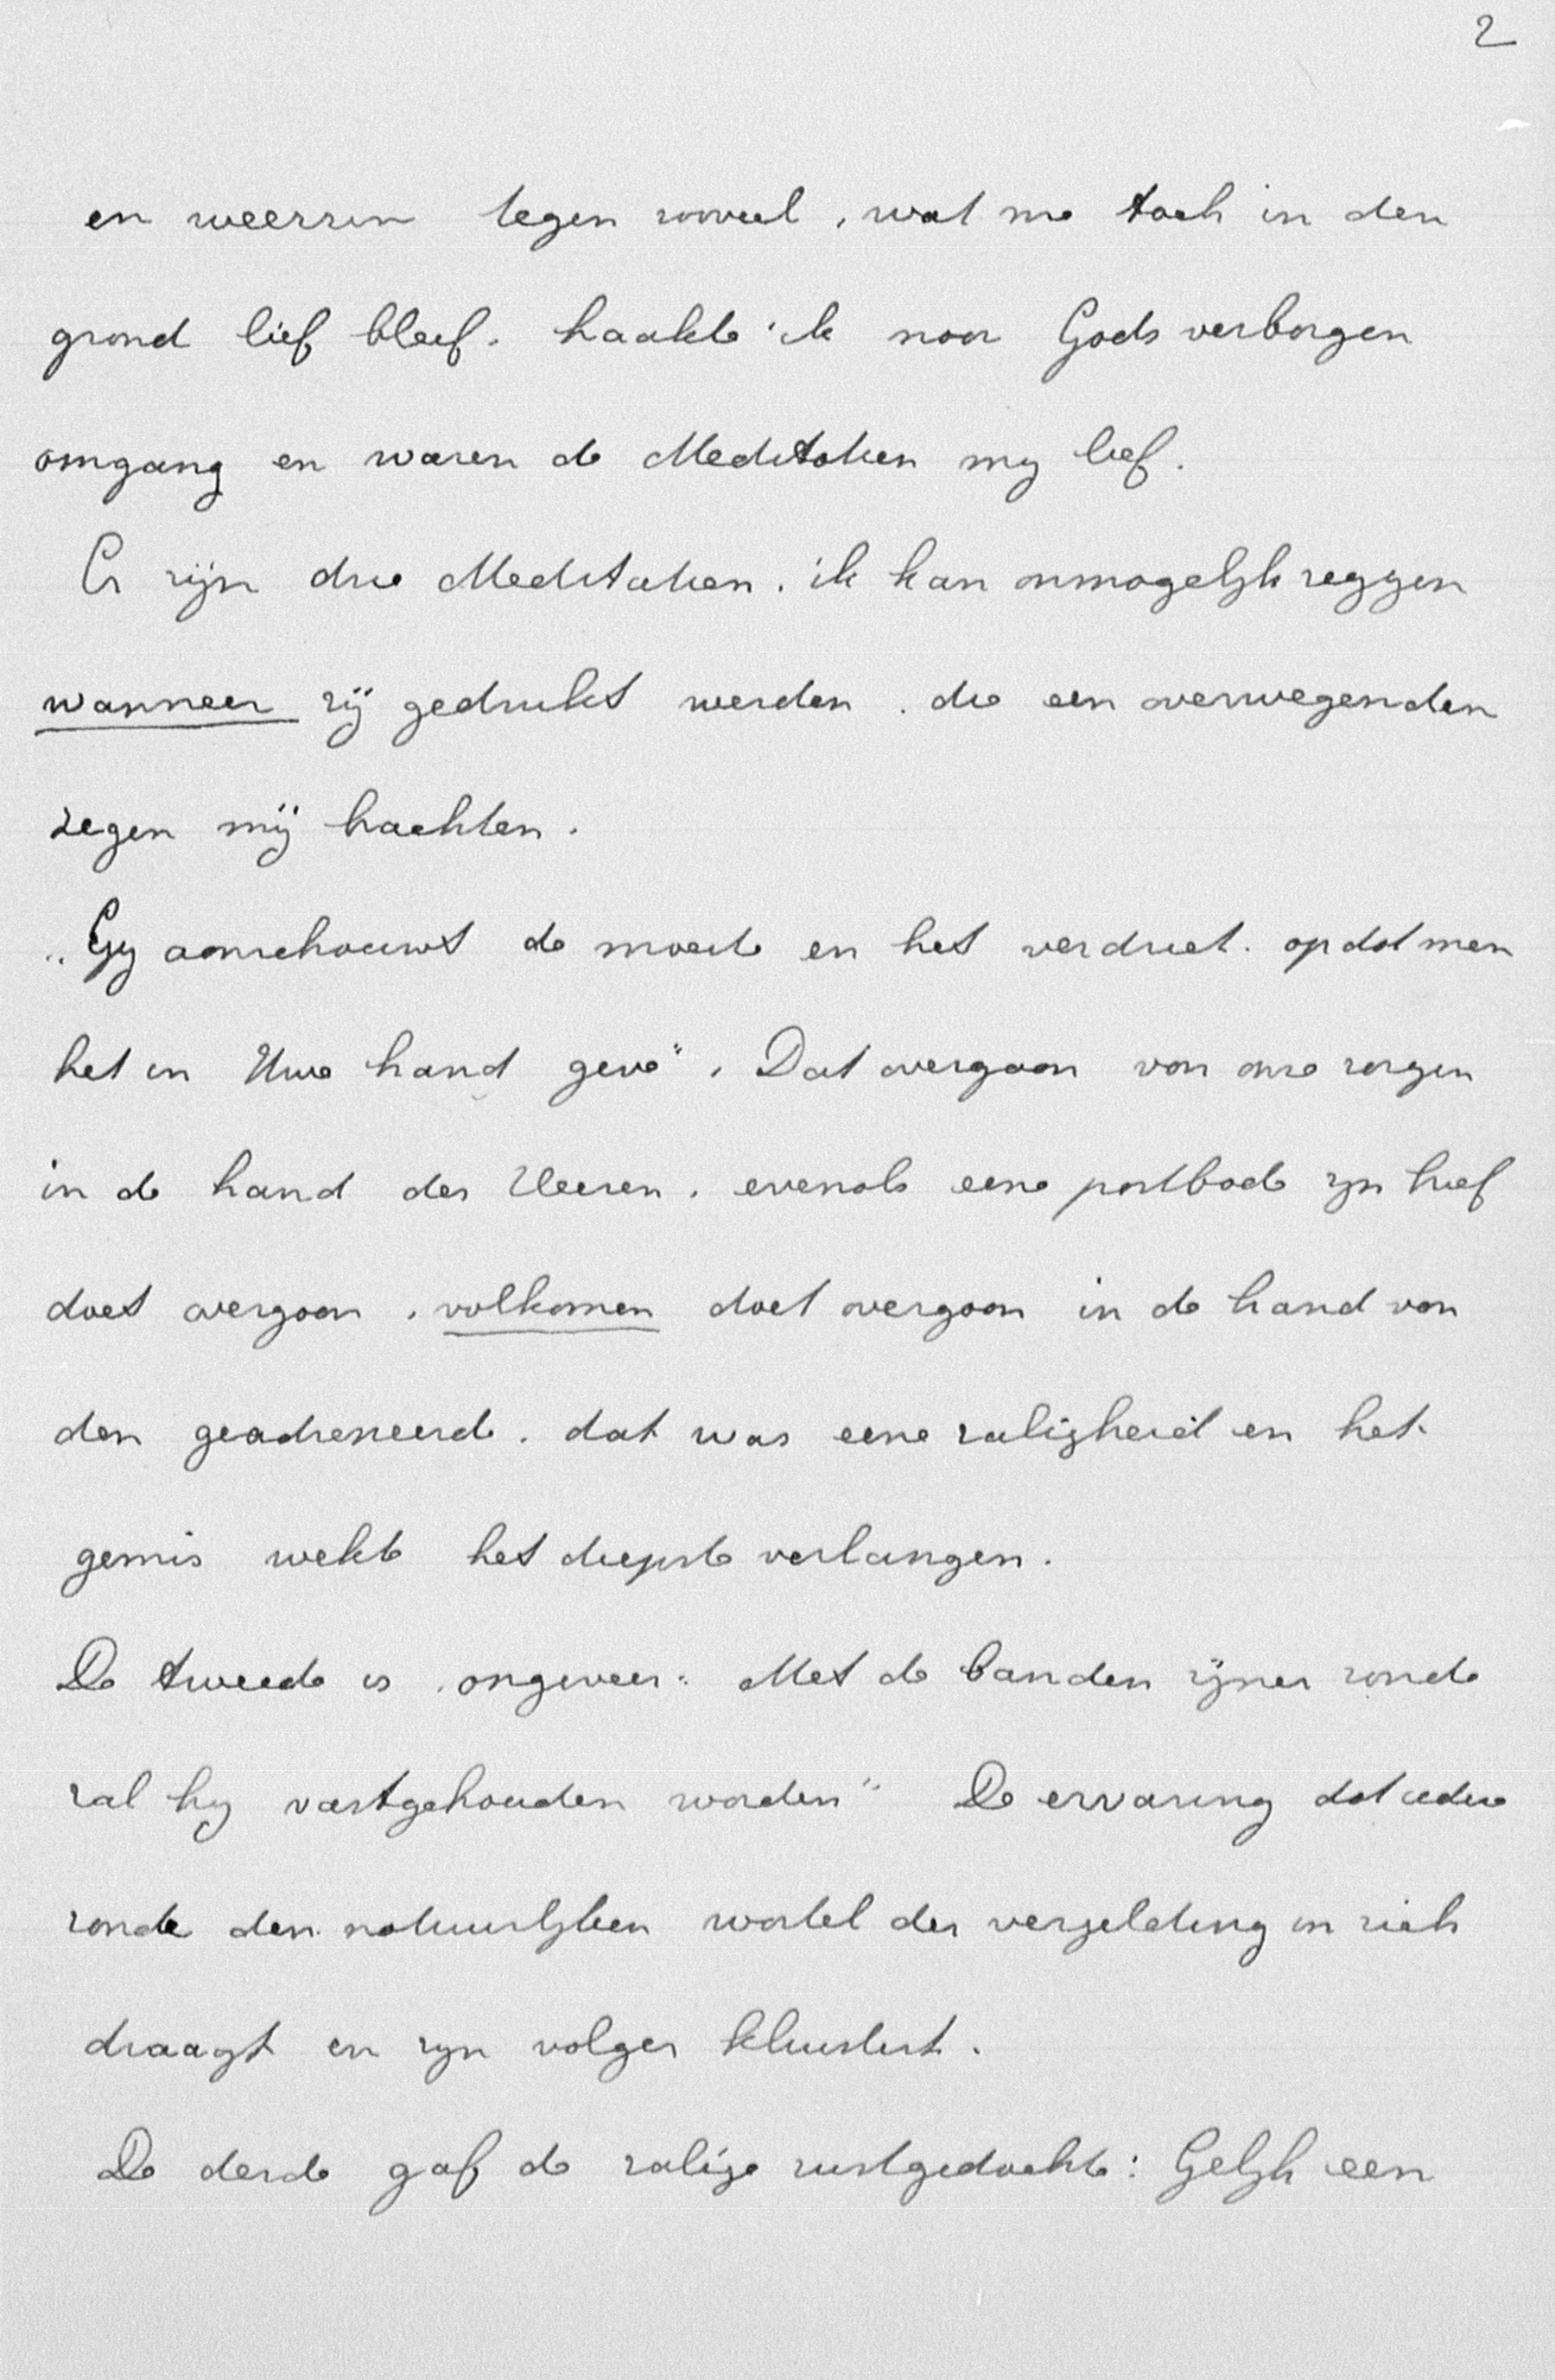 2
en weerzin tegen zooveel, wat me toch in den
grond lief bleef. haakte ik naar Gods verborgen
omgang en waren de Meditatien mij lief.
Er zijn drie Meditatien. ik kan onmogelijk zeggen
wanneer zij gedrukt werden. die een overwegenden
zegen mij brachten.
„Gij aanschouwt de moeite en het verdriet. opdat men
het in Uwe hand geve". Dat overgaan van onze zorgen
in de hand des Heeren. evenals eene postbode zijn brief
doet overgaan. volkomen doet overgaan in de hand van
den geadresseerde. dat was eene zaligheid en het
gemis wekte het diepste verlangen.
De tweede is ongeveer: Met de banden zijner zonde
zal hij vastgehouden worden" De ervaring dat iedere
zonde den natuurlijken wortel der vergelding in zich
draagt en zijn volger kluistert.
De derde gaf de zalige rustgedachte: Gelijk een